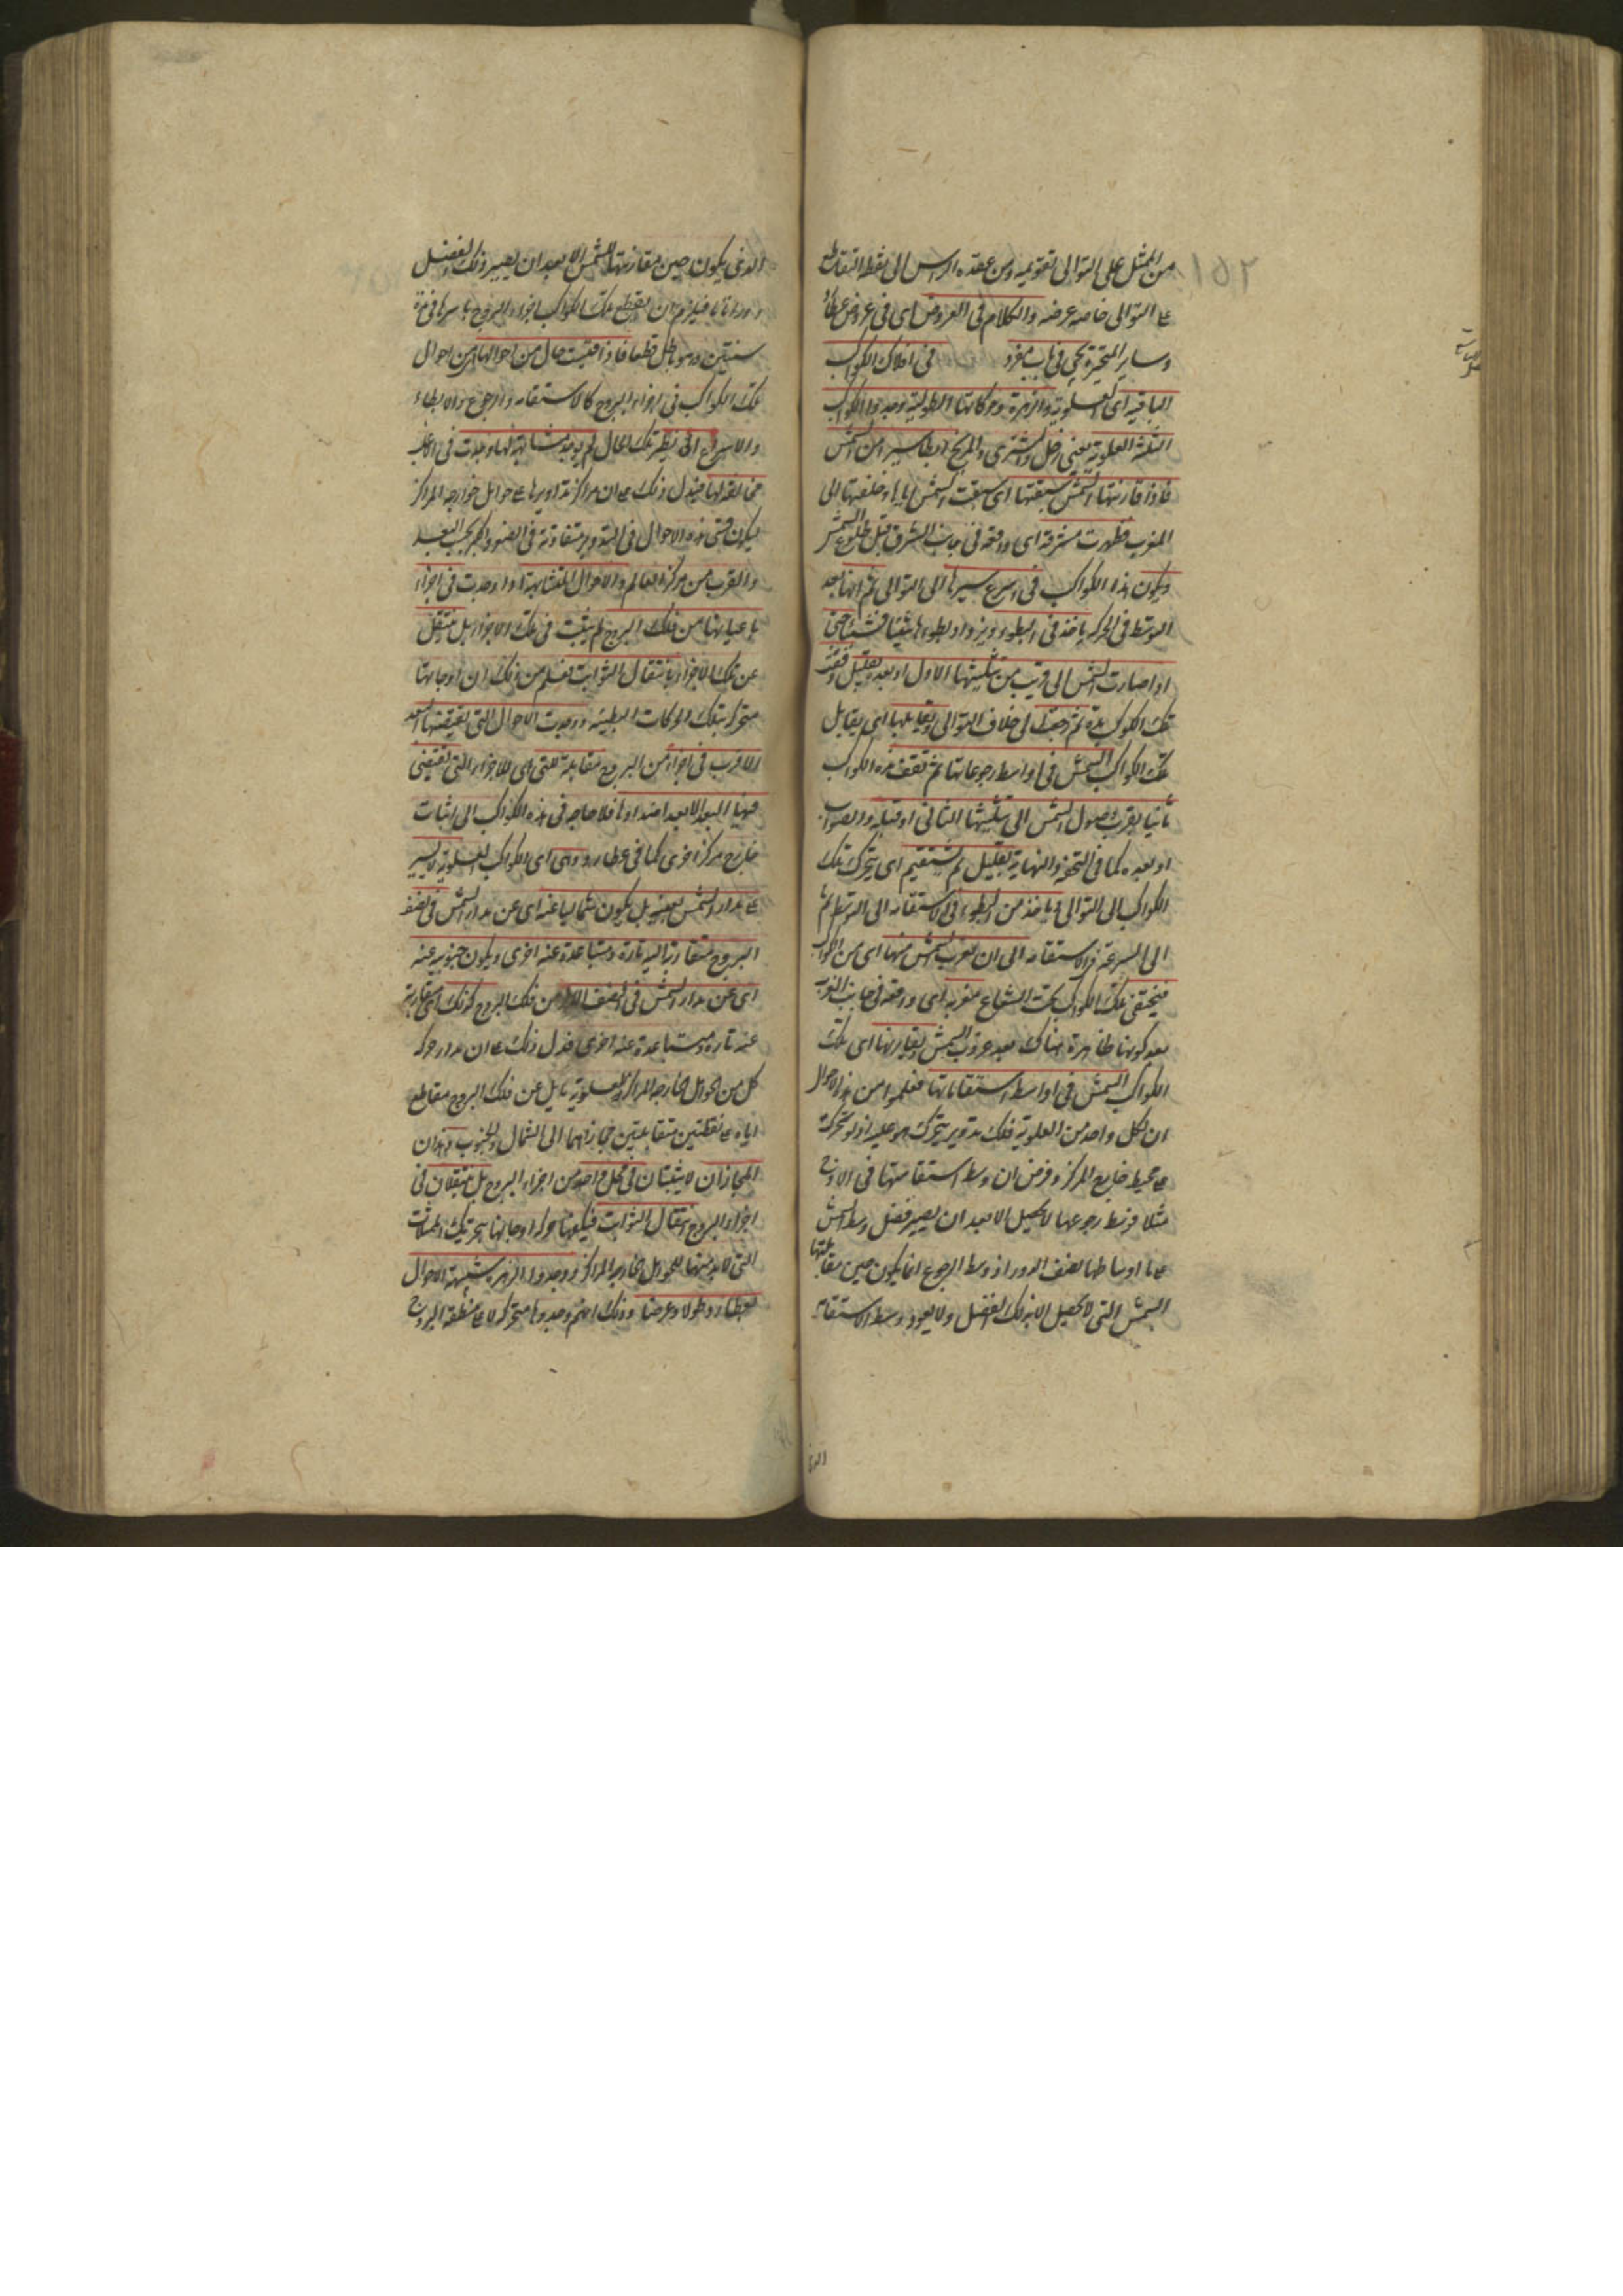 ١٥٢
من الممثل على التوالى تقويمه ومن عقدة الراس الى نقطة التقاطع
على التوالى خاصه عرضه والكلام فى العروض اى فى عروض عطارد
وساير المتحيرة يجى فى باب مفرد فى افلاك الكواكب
الباقيه اى العلوية والزهرة وحركاتها الطولية وجدوا الكواكب
الثلثة العلوية يعنى زحل والمشترى والمريخ ابطا سيرا من الشمس
فاذا قارنتها الشمس سبقتها اى سبقت الشمس اياها وخلفتها الى
المغرب فظهرت مشرقة اى واقعه فى جانب المشرق قبل طلوع الشمس
ويكون هذا الكواكب فى اسرع سيرها الى التوالى ثم انها بعد
التوسط فى الحركه ياخذ فى البطوء ويزداد بطوءها شيئا فشيئا حتى
اذا صارت الشمس الى قريب من تثليثها الاول او بعده بقليل وقفت
تلك الكواكب مدة ثم رجعت الى خلاف التوالى ويقابلها اى يقابل
تلك الكواكب الشمس فى اواسط رجوعاتها ثم تقف هذه الكواكب
ثانيا بقرب وصول الشمس الى تثليثها الثانى او قبله والصواب
او بعده كما فى التحفة والنهاية بقليل ثم تستقيم اى يتحرك تلك
الكواكب الى التوالى وياخذ من البطوء فى الاستقامه الى التوسط ثم
الى السرعة فى الاستقامه الى ان يقرب الشمس منها اى من الكواكب
فيختفى تلك الكواكب تحت الشعاع مغربه اى واقعه فى جانب المغرب
بعد كونها ظاهرة هناك بعد غروب الشمس ويقارنها اى تلك
الكواكب الشمس فى اواسط استقاماتها فعلموا من هذه الاحوال
ان لكل واحد من العلوية فلك تدوير يتحرك هو عليه اذ لو تحركت
على محيط خارج المركز وفرض ان وسط استقامتها فى الاوج
مثلا فوسط رجوعها لا يحصل الا بعد ان يصير فضل وسط الشمس
على اوساطها نصف الدور اذ وسط الرجوع انما يكون حين مقابلتها
الشمس التى لا تحصل الا بذلك الفضل ولا يعود وسط الاستقامة
الذى يكون حين مقارنتها للشمس الا بعد ان يصير ذلك الفضل
دورا تاما فيلزم ان يقطع تلك الكواكب اجزاء البروج باسرها فى مدة
سنتين وهو باطل قطعا فاذا قيست حال من احوالها من احوال
تلك الكواكب فى اجزاء البروج كالاستقامه والرجوع والابطاء
والاسراع الى نظير تلك الحال لم يوجد مشابهة لها وجدت فى اغلب
مخالفة لها فيدل ذلك على ان مراكز تداويرها على حوامل خوارجه المراكز
ليكون قسى هذه الاحوال فى التدوير متفاوتة فى الصغر والكبر بحسب البعد
والقرب من مركز العالم والاحوال المتشابهة اذا وجدت فى اجزاء
باعيانها من فلك البروج لم يثبت فى تلك الاجزاء بل منتقل
عن تلك الاجزاء بانتقال الثوابت فعلم من ذلك ان اوجاتها
متحركة بتلك الحركات البطيئه ووجدت الاحوال التى تقتضيها البعد
الاقرب فى اجزاء من البروج مقابلة للتى اى للاجزاء التى تقتضى
فيها البعد الابعد اضدادها فلا حاجه فى هذه الكواكب الى اثبات
خارج مركز اخرى كما فى عطارد وهى اى الكواكب العلوية لا يسير
على مدار الشمس بعينه بل يكون شماليا عنه اى عن مدار الشمس فى نصف
البروج متقاربة اليه تارة ومتباعدة عنه اخرى ويكون جنوبيه عنه
اى عن مدار الشمس فى النصف الاخر من فلك البروج كذلك اى متقاربة
عنه تارة ومتباعدة عنه اخرى فدل ذلك على ان مدار حركه
كل من الحوامل الخارجه المراكز للعلوية مايل عن فلك البروج مقاطع
اياه على نقطتين متقابلتين مجازيهما الى الشمال والجنوب وهذان
المجازان لا يثبتان فى محل واحد من اجزاء البروج بل ينتقلان فى
اجزاء البروج انتقال الثوابت فيكفيها حركه اوجاتها بتحريك الممثلات
التى لا بد منها للحوامل الخارجه المراكز ووجدوا الزهرة شبيهة الاحوال
بعطارد طولا وعرضا وذلك انهم وجدوها متحركه لا على منطقة البروج